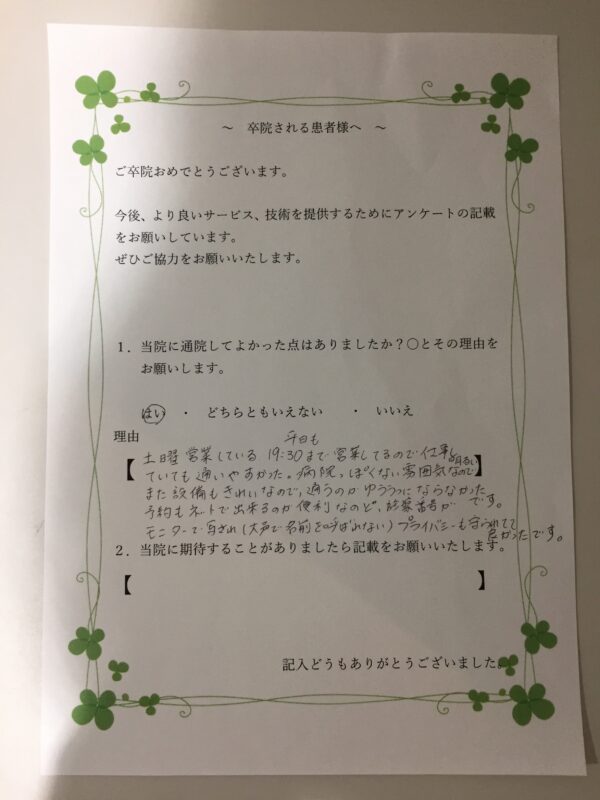 ～　卒院される患者様へ　～
ご卒院おめでとうございます。
今後、より良いサービス、技術を提供するためにアンケートの記載
をお願いしています。
ぜひご協力をお願いいたします。
１．当院に通院してよかった点はありましたか？○とその理由を
お願いします。
はい　・　どちらともいえない　・　いいえ
理由
平日も
【土曜営業している 19:30まで営業してるので仕事し
ていても通いやすかった。病院っぽくない明るい雰囲気なので】
また設備もきれいなので、通うのがゆううつにならなかった
です。
予約もネットで出来るのが便利なのと、診察番号が
モニターで写され(大声で名前を呼ばれない)プライバシーも守られてて
良かったです。
２．当院に期待することがありましたら記載をお願いいたします。
【　】
記入どうもありがとうございました。